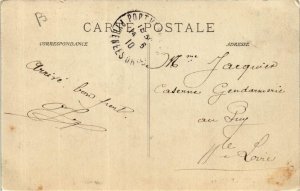 CARTE POSTALE
CORRESPONDANCE
ADRESSE
Arrivé bon port.
Mme Jacquier
Caserne Gendarmerie
au Puy
Hte Loire